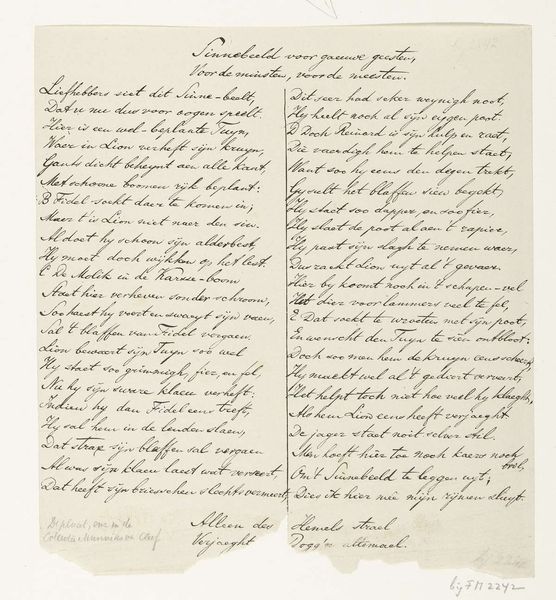 Sinnebeeld voor gaeuwe geesten,
Voor de minsten, voor de meesten.
Liefhebbers siet dit Sinne-beelt,
Dat u nu dus voor oogen speelt.
Hier is een wel-beplante Tuyn,
Waer in Lion verheft sijn kruyn,
Gants dicht beheynt aen alle kant,
Met schoone boomen rijk beplant:
B Fidel soekt daer te komen in;
Maer 't is Lion niet naer den sin.
Al doet hy schoon sijn alderbest,
Hy moet doch wijken op het lest.
C De Molik in de Karsse-boom
Staet hier verheven sonder schroom,
Soo haest hy voert en swaeyt sijn veen,
Sal 't blaffen van Fidel vergaen.
Lion bewaert sijn Tuyn soo wel
Hy staet soo grimmigh, fier, en fel,
Nu hy sijn swaere klaeu verheft:
Indien hy dan Fidel eens treft,
Hy sal hem in de lenden slaen,
Dat strax sijn blaffen sal vergaen
Al was sijn klaeu laest wat verseert,
Dat heeft sijn brieschen slechts vermeert,
Dit seer had seker weynigh noot,
Hy heelt noch al sijn eygen poot.
D Doch Reinard is sijn hulp en raet,
Die vaerdigh hem te helpen staet,
Want soo hy eens den degen trekt,
Gy selt het blaffen sien begekt,
Hy staet soo dapper, en soo fier,
Hy slaet de poot al aen 't rapier,
Hy past sijn slagh te nemen waer,
Dus raekt Lion uyt al 't gevaer.
Hier by koomt noch in 't schapen-vel
Het dier voor lammers veel te fel,
E Dat soekt te wroeten met sijn poot,
En wenscht den Tuyn te sien ontbloot:
Doch soo men hem de kruyn eens scheert,
Hy maekt wel al 't geloert verveert,
Het helpt toch niet hoe veel hy klaeght,
Als hem Lion eens heeft verjaeght
De jager staet noit selver stil.
Men hoeft hier toe noch kaers noch
bril,
Om 't Sinnebeeld te leggen uyt;
Dies ik hier mêe mijn rijmen sluyt.
Alleen des Hemels strael
Verjaeght Dogg'n altemael.
De plaat, enz in de
Collectie Munnicks v. Cleef
bij FM 2242